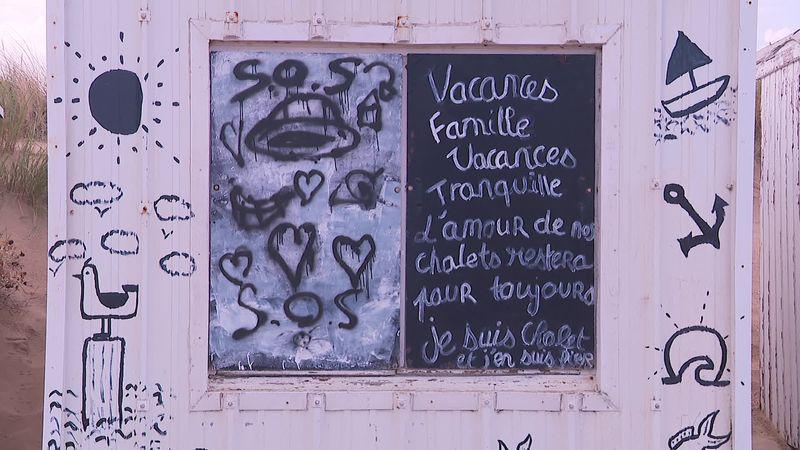 S.O.S
S.O.S.
Vacances
Famille
Vacances
Tranquille
L'amour de nos
chalets restera
pour toujours
je suis Chalet
et j'en suis fier